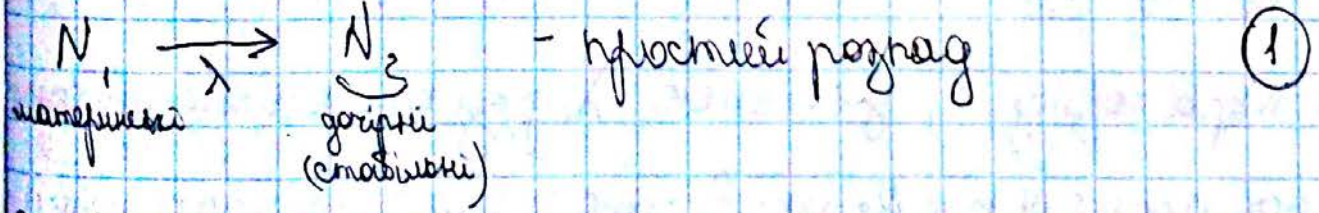 N₁ →λ N₂ - простий розпад ①
материнські дочірні
(стабільні)